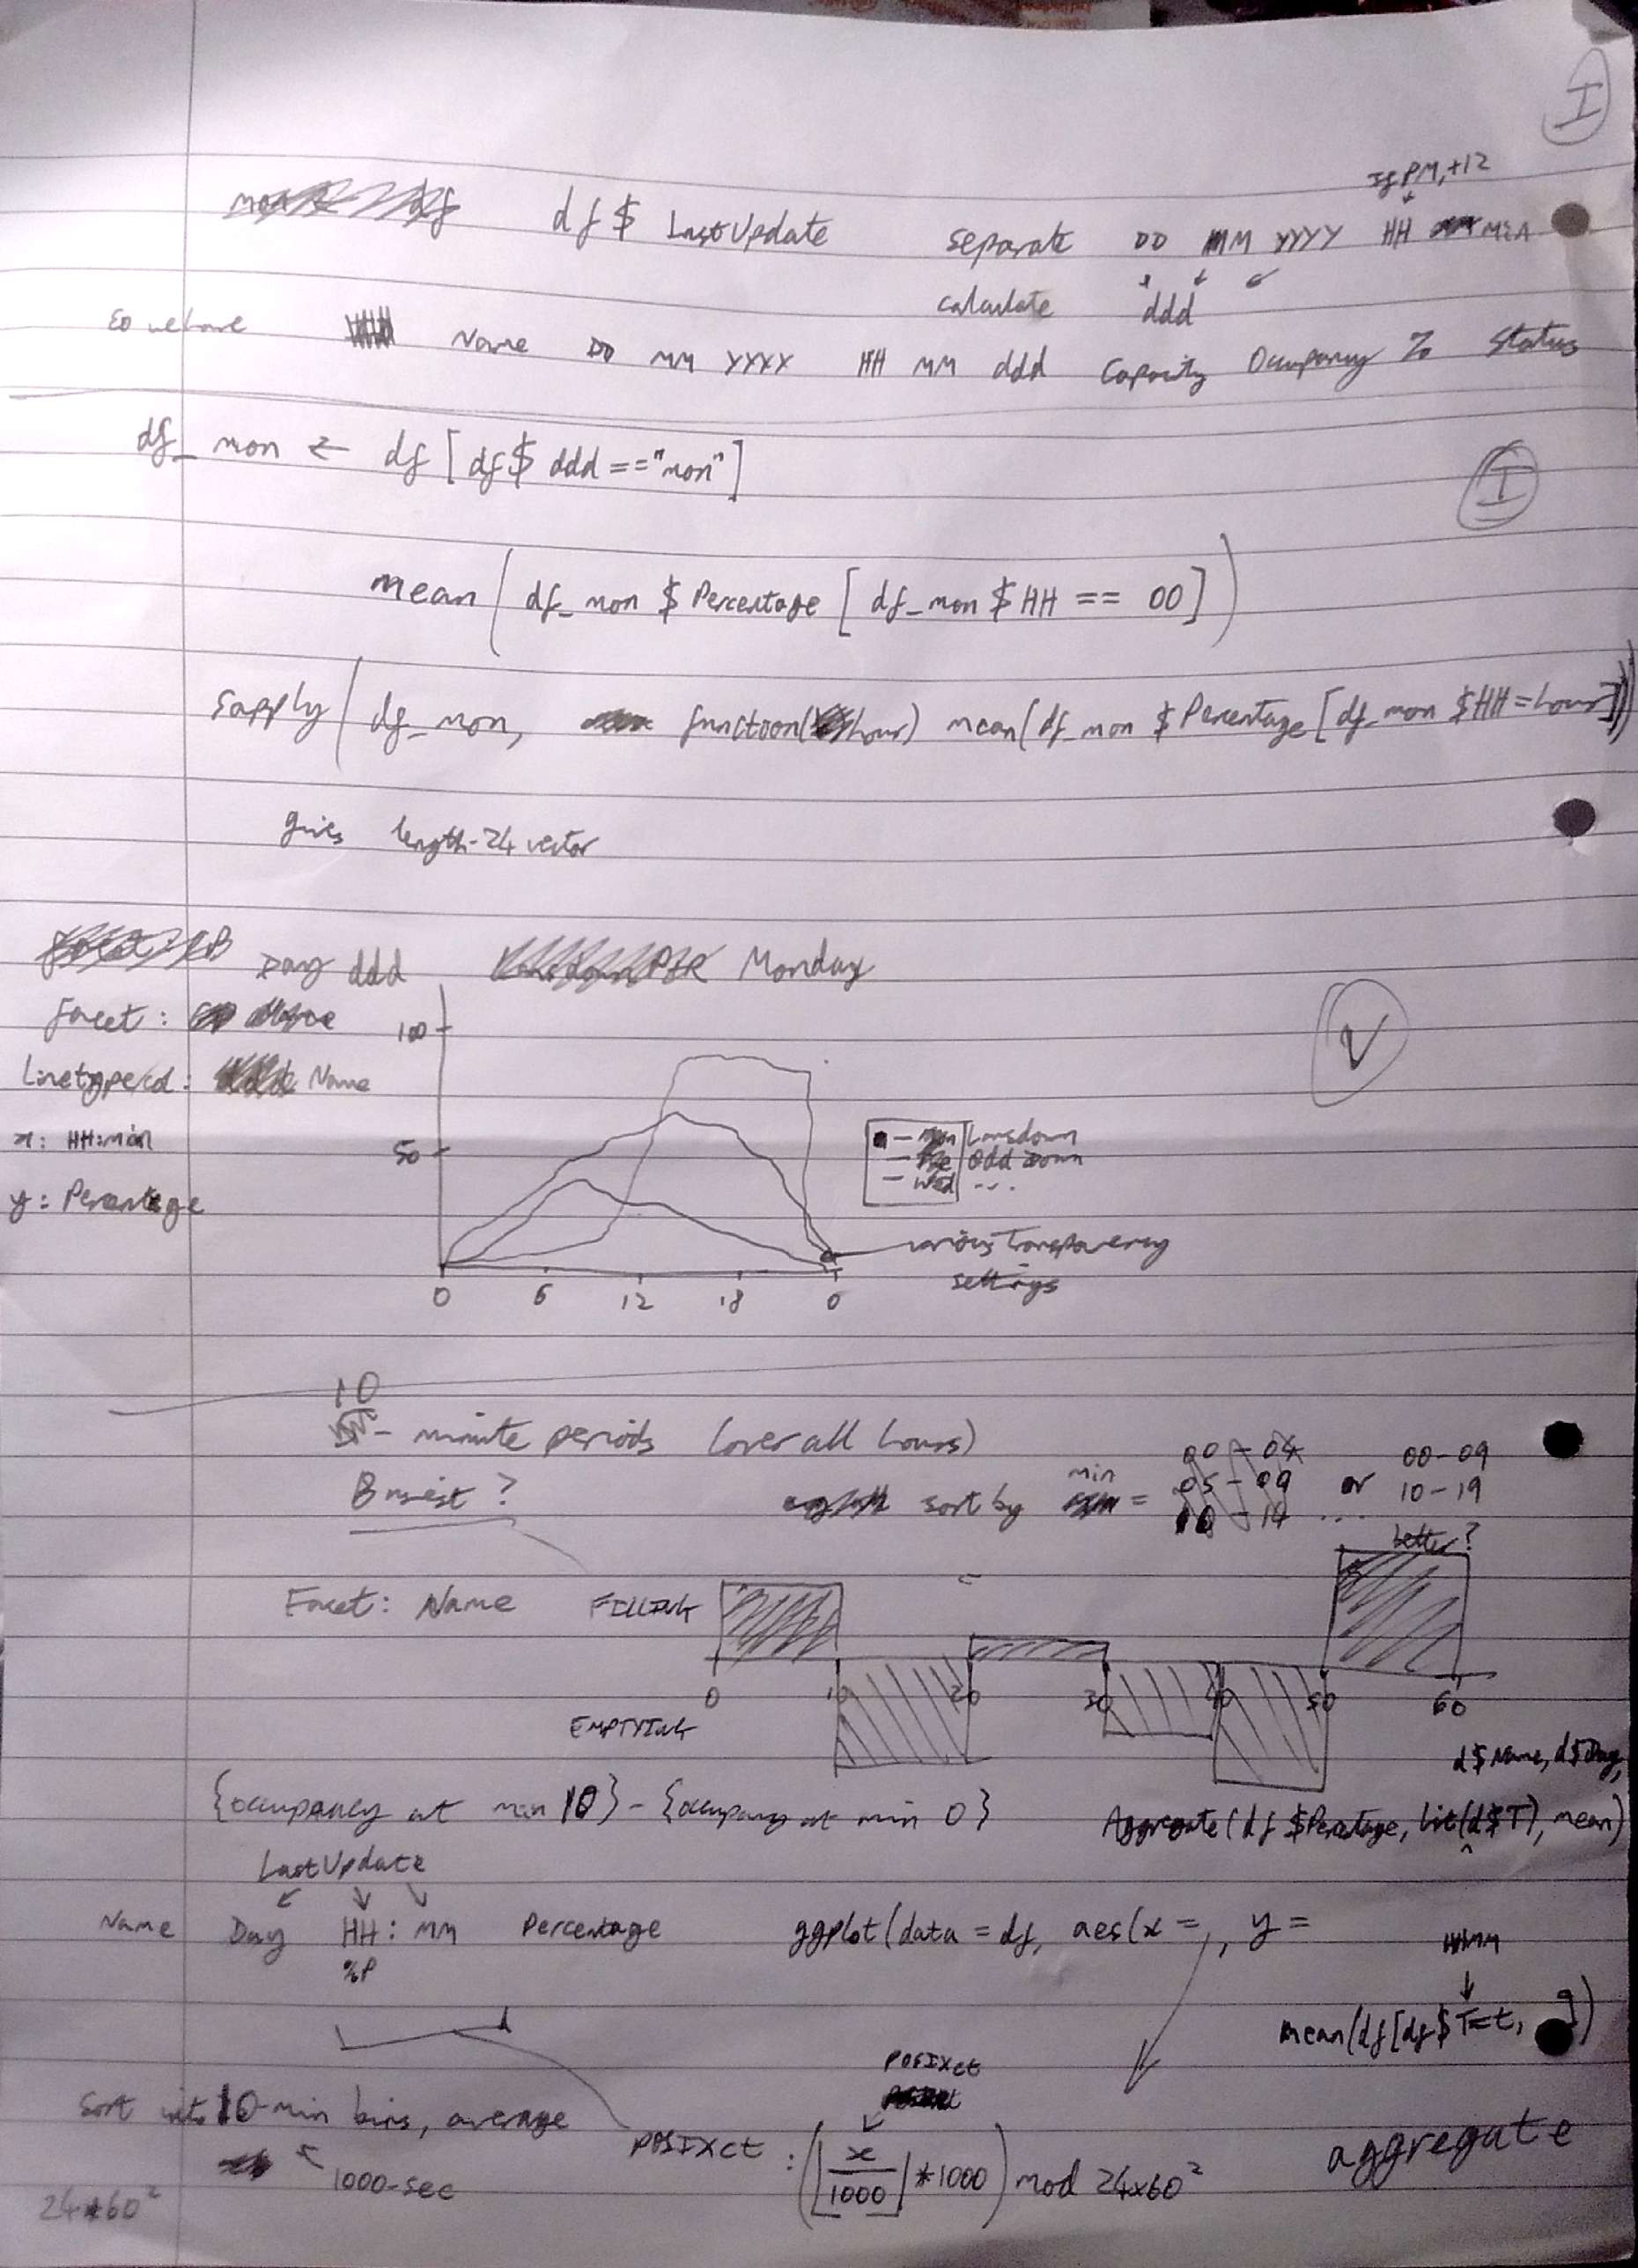 I
If PM, +12
df $ LastUpdate separate DD MM YYYY HH MiA
calculate ddd
So we have Name DD MM YYYY HH MM ddd Capacity Occupancy % Status
df_mon ← df [ df$ ddd == "mon" ]
I
mean ( df_mon $ Percentage [ df_mon $ HH == 00 ] )
sapply ( df_mon, function( hour) mean(df_mon $ Percentage [df_mon $HH = hour]))
gives length-24 vector
Day ddd Monday
facet:
Linetype/col: Name
x: HH:min
y: Percentage
100
50
0 6 12 18 0
V
Lansdown
Odd Down
...
various transparency
settings
10
- minute periods (over all hours)
Busiest?
sort by min =
00 - 04
05 - 09
10 - 14 ....
or
00 - 09
10 - 19
better?
Facet: Name
FILLING
EMPTYING
0 10 20 30 40 50 60
{occupancy at min 10} - {occupancy at min 0}
d$Name, d$Day,
Aggregate(df $Percentage, list(d$T), mean)
LastUpdate
Name Day HH : MM Percentage
%P
ggplot(data = df, aes(x = , y =
mean(df[df$T=t, ])
Sort into 10-min bins, average
1000-sec
24*60²
POSIXct
POSIXct : (⌊x/1000⌋*1000) mod 24x60²
aggregate